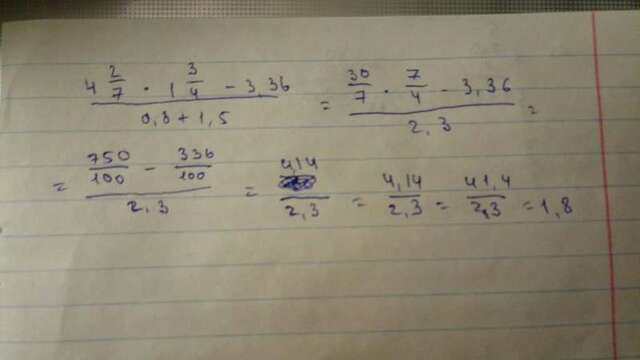 (4 2/7 · 1 3/4 - 3,36) / (0,8 + 1,5) = (30/7 · 7/4 - 3,36) / 2,3 =
= (750/100 - 336/100) / 2,3 = 4,14 / 2,3 = 4,14 / 2,3 = 41,4 / 2,3 = 1,8